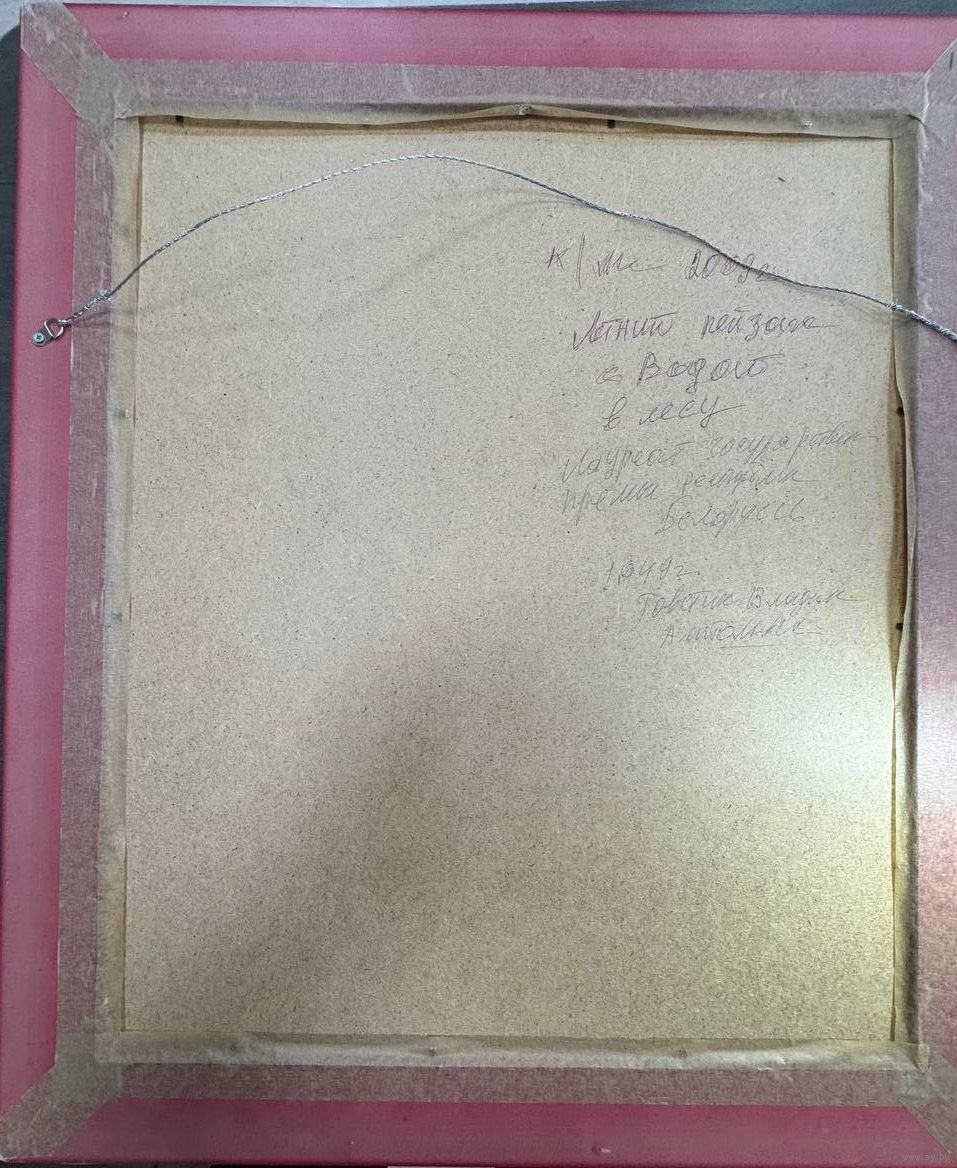 К/м 2009г.
Летний пейзаж
с Водой
в лесу
Лауреат государствен
премии республики
Беларусь
1949г.
Товстик Владим
Анатольев
www.ay.by